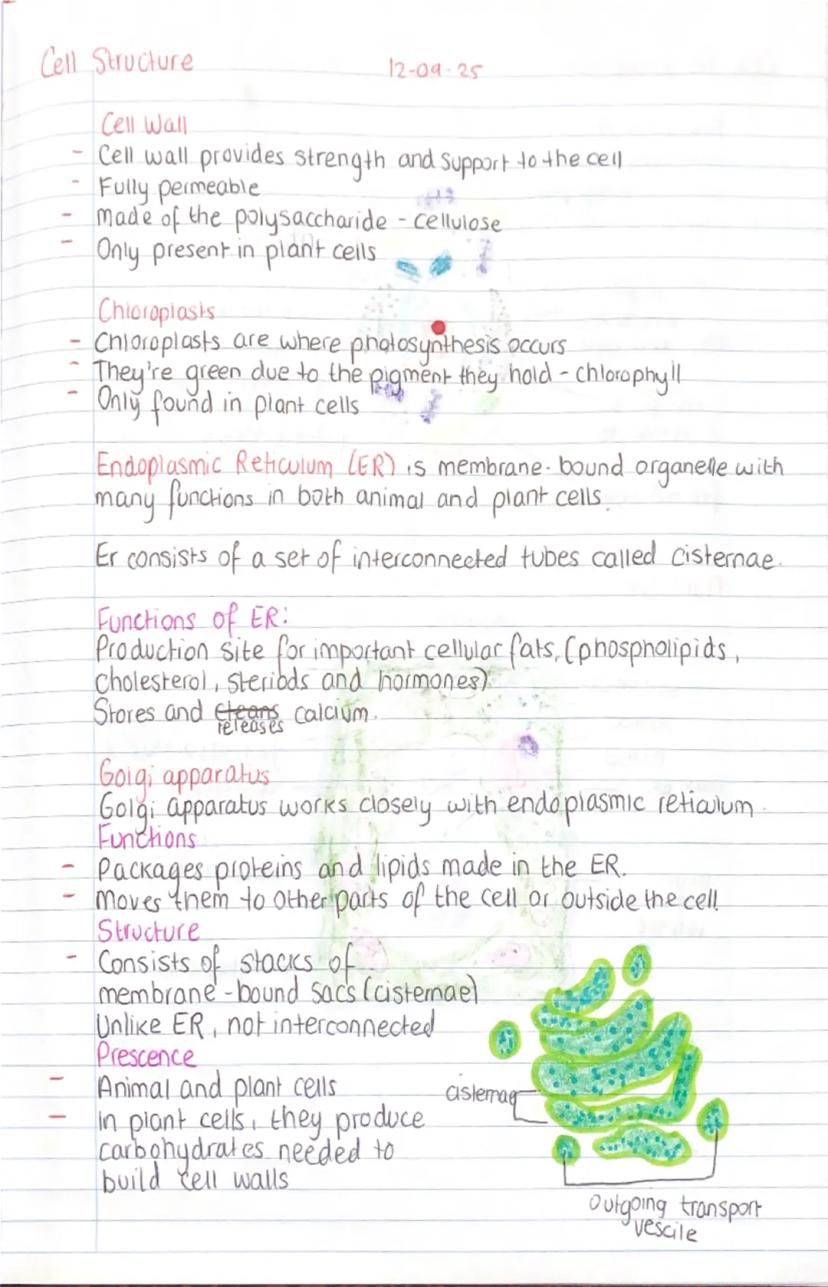 Cell Structure 12-09-25
Cell Wall
- Cell wall provides strength and support to the cell
- Fully permeable
- made of the polysaccharide - cellulose
- Only present in plant cells
Chloroplasts
- Chloroplasts are where photosynthesis occurs
- They're green due to the pigment they hold - chlorophyll
- Only found in plant cells
Endoplasmic Reticulum (ER) is membrane-bound organelle with
many functions in both animal and plant cells.
Er consists of a set of interconnected tubes called cisternae.
Functions of ER:
Production site for important cellular fats, (phospholipids,
cholesterol, steriods and hormones)
Stores and cleans calcium.
releases
Golgi apparatus
Golgi apparatus works closely with endoplasmic reticulum.
Functions
- Packages proteins and lipids made in the ER.
- moves them to other parts of the cell or outside the cell
Structure
- Consists of stacks of
membrane-bound sacs (cisternae)
Unlike ER, not interconnected
Prescence
- Animal and plant cells
- in plant cells, they produce
carbohydrates needed to
build cell walls
cisternae
Outgoing transport
vescile